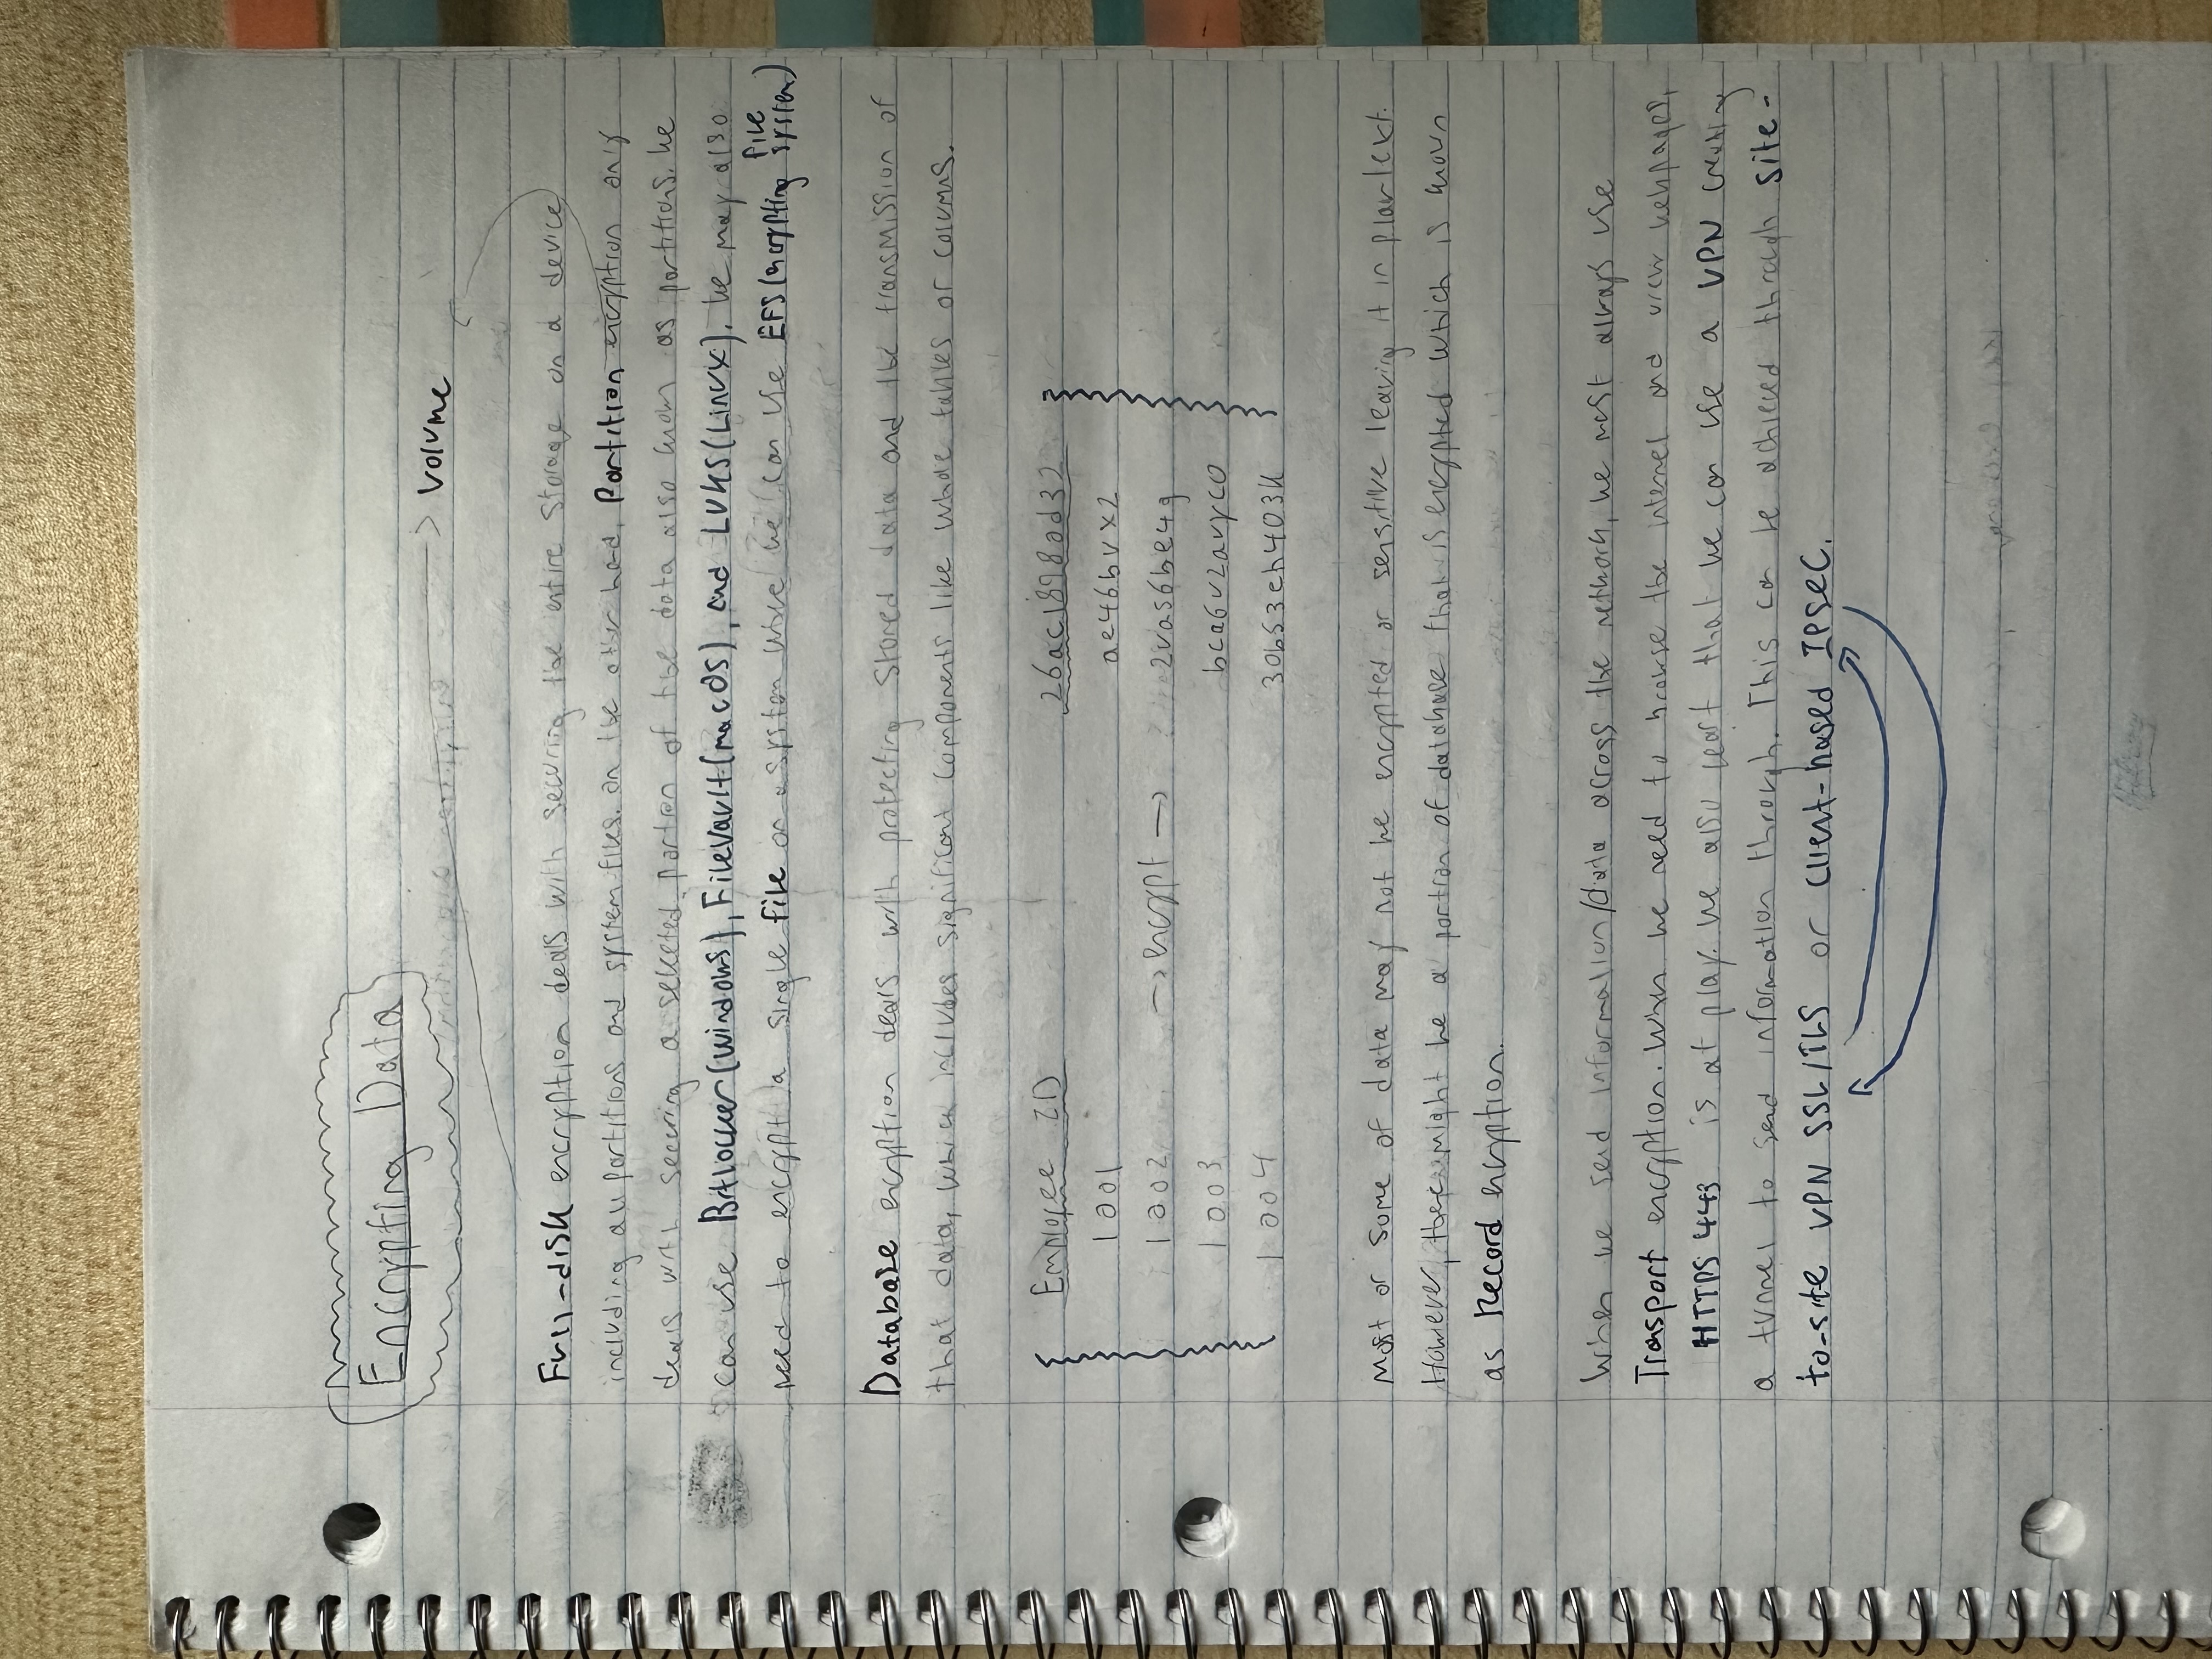 Encrypting Data
→ Volume
Full-disk encryption deals with securing the entire storage on a device
including all partitions and system files. On the other hand, Partition encryption only
deals with securing a selected portion of the data also known as partitions. We
can use BitLocker (Windows), FileVault (macOS), and LUKS (Linux). We may also
need to encrypt a single file on a system where we can use EFS (encrypting file system)
Database encryption deals with protecting stored data and the transmission of
that data, which includes significant components like whole tables or columns.
Employee ID 26ac1898ad32
1001 ae46bvx2
1002 → encrypt → 2vas6be4g
1003 bca6v2avyc0
1004 30b53eh403k
Most or some of data may not be encrypted or sensitive leaving it in plaintext.
However, there might be a portion of database that is encrypted which is known
as Record encryption.
When we send information/data across the network, we most always use
Transport encryption. When we need to browse the internet and view webpages,
HTTPS 443 is at play. We also that we can use a VPN creating
a tunnel to send information through. This can be achieved through site-
to-site VPN SSL/TLS or client-based IPSEC.